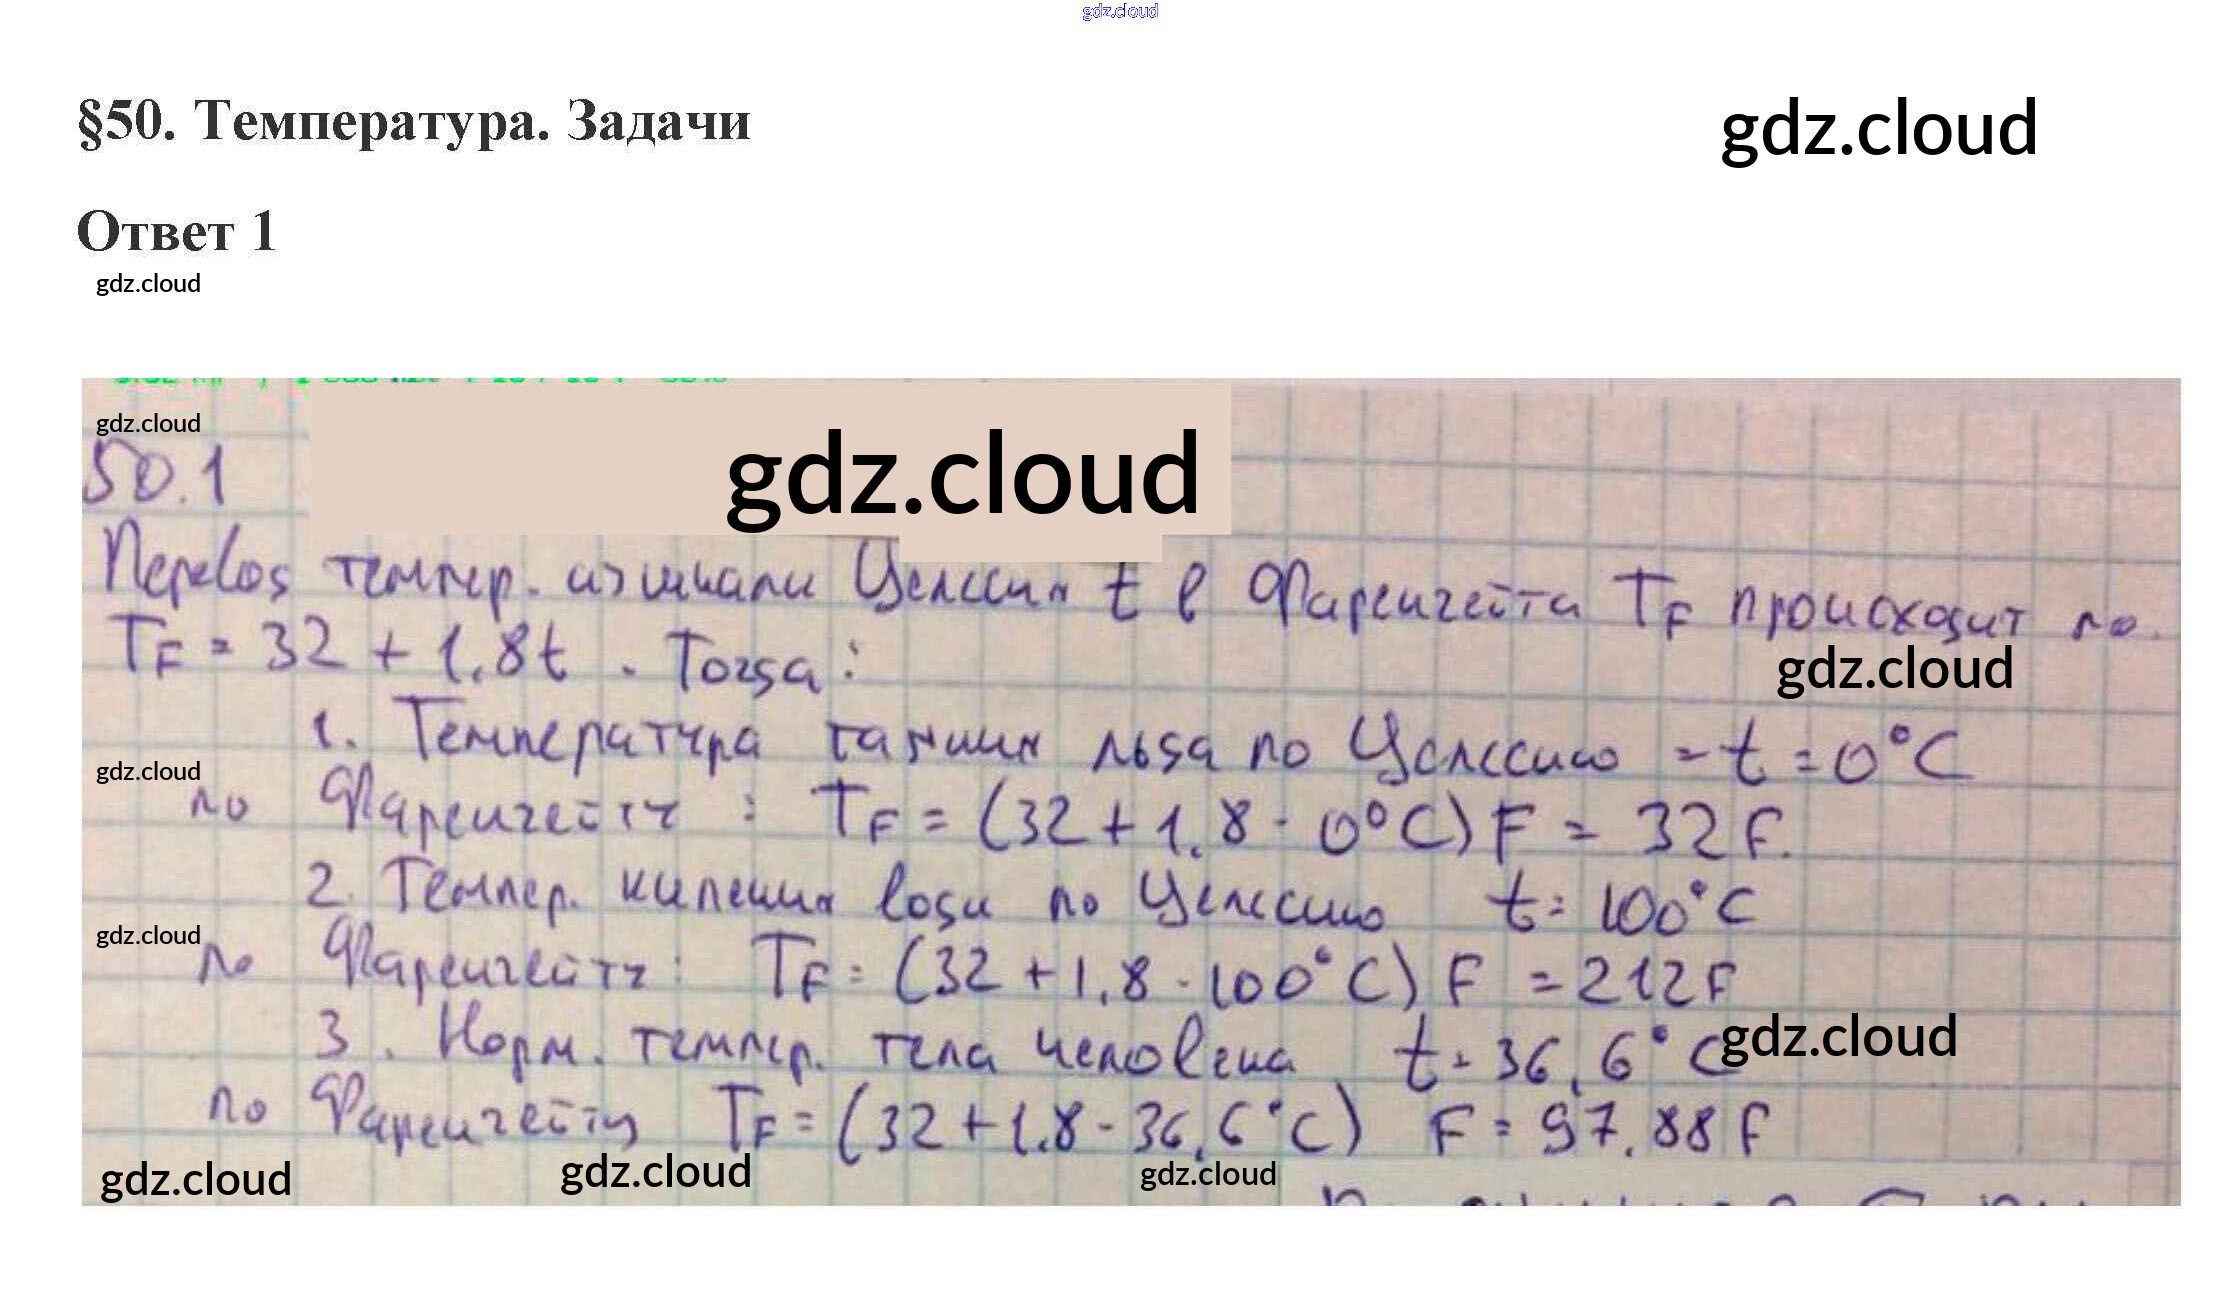 gdz.cloud
§50. Температура. Задачи
gdz.cloud
Ответ 1
gdz.cloud
gdz.cloud
50.1
gdz.cloud
Перевод темпер. из шкалы Цельсия t в Фаренгейта T_F происходит по
T_F = 32 + 1.8t. Тогда:
gdz.cloud
1. Температура таяния льда по Цельсию - t = 0°C
gdz.cloud
по Фаренгейту : T_F = (32 + 1.8 · 0°C) F = 32 F.
2. Темпер. кипения воды по Цельсию t = 100°C
gdz.cloud
по Фаренгейту: T_F = (32 + 1.8 · 100°C) F = 212 F
3. Норм. темпер. тела человека t = 36,6°C
gdz.cloud
по Фаренгейту T_F = (32 + 1.8 · 36,6°C) F = 97.88 F
gdz.cloud gdz.cloud gdz.cloud